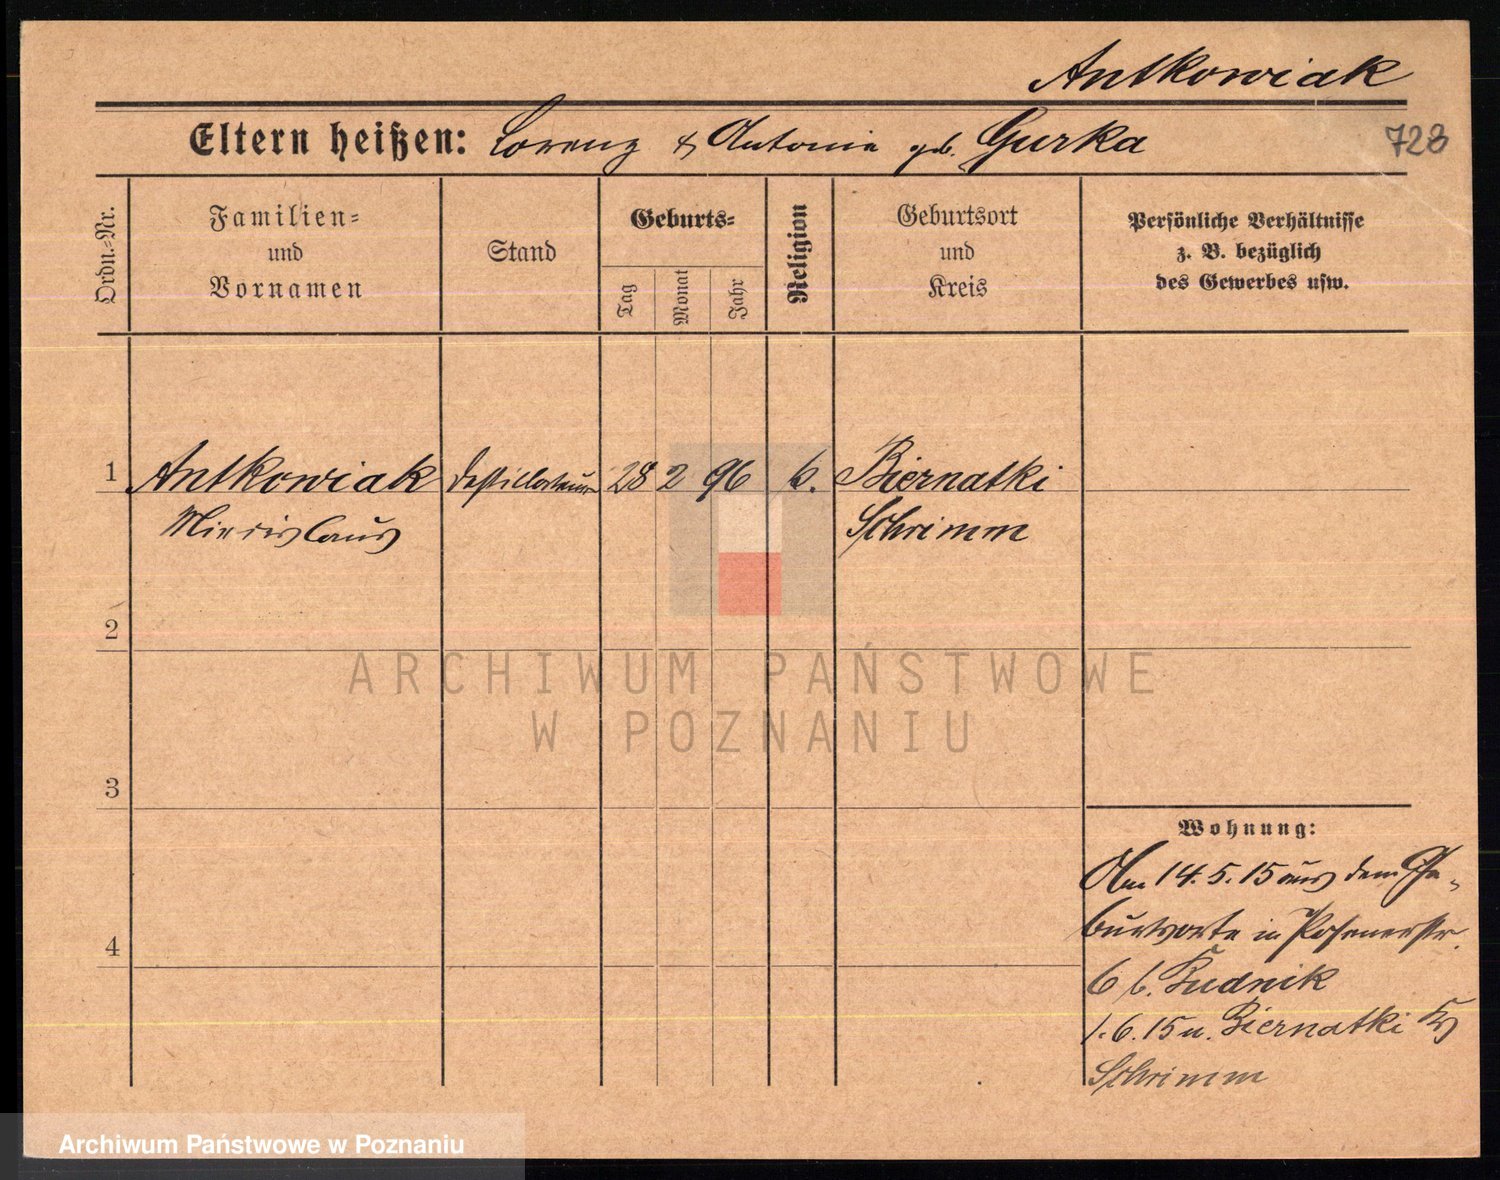 Antkowiak
Eltern heißen: Lorenz & Antonie geb. Gurka
728
Ordn.-Nr.
Familien-
und
Vornamen
Stand
Geburts-
Tag
Monat
Jahr
Religion
Geburtsort
und
Kreis
Persönliche Verhältnisse
z. B. bezüglich
des Gewerbes usw.
1 Antkowiak Destillateur 28 2 96 k. Biernatki
Miecislaus Schrimm
2
3
4
Wohnung:
Am 14.5.15 aus dem Ge-
burtsorte in Posenerstr.
6 b. Rudnik
1.6.15 n. Biernatki Kr
Schrimm
ARCHIWUM PAŃSTWOWE
W POZNANIU
Archiwum Państwowe w Poznaniu